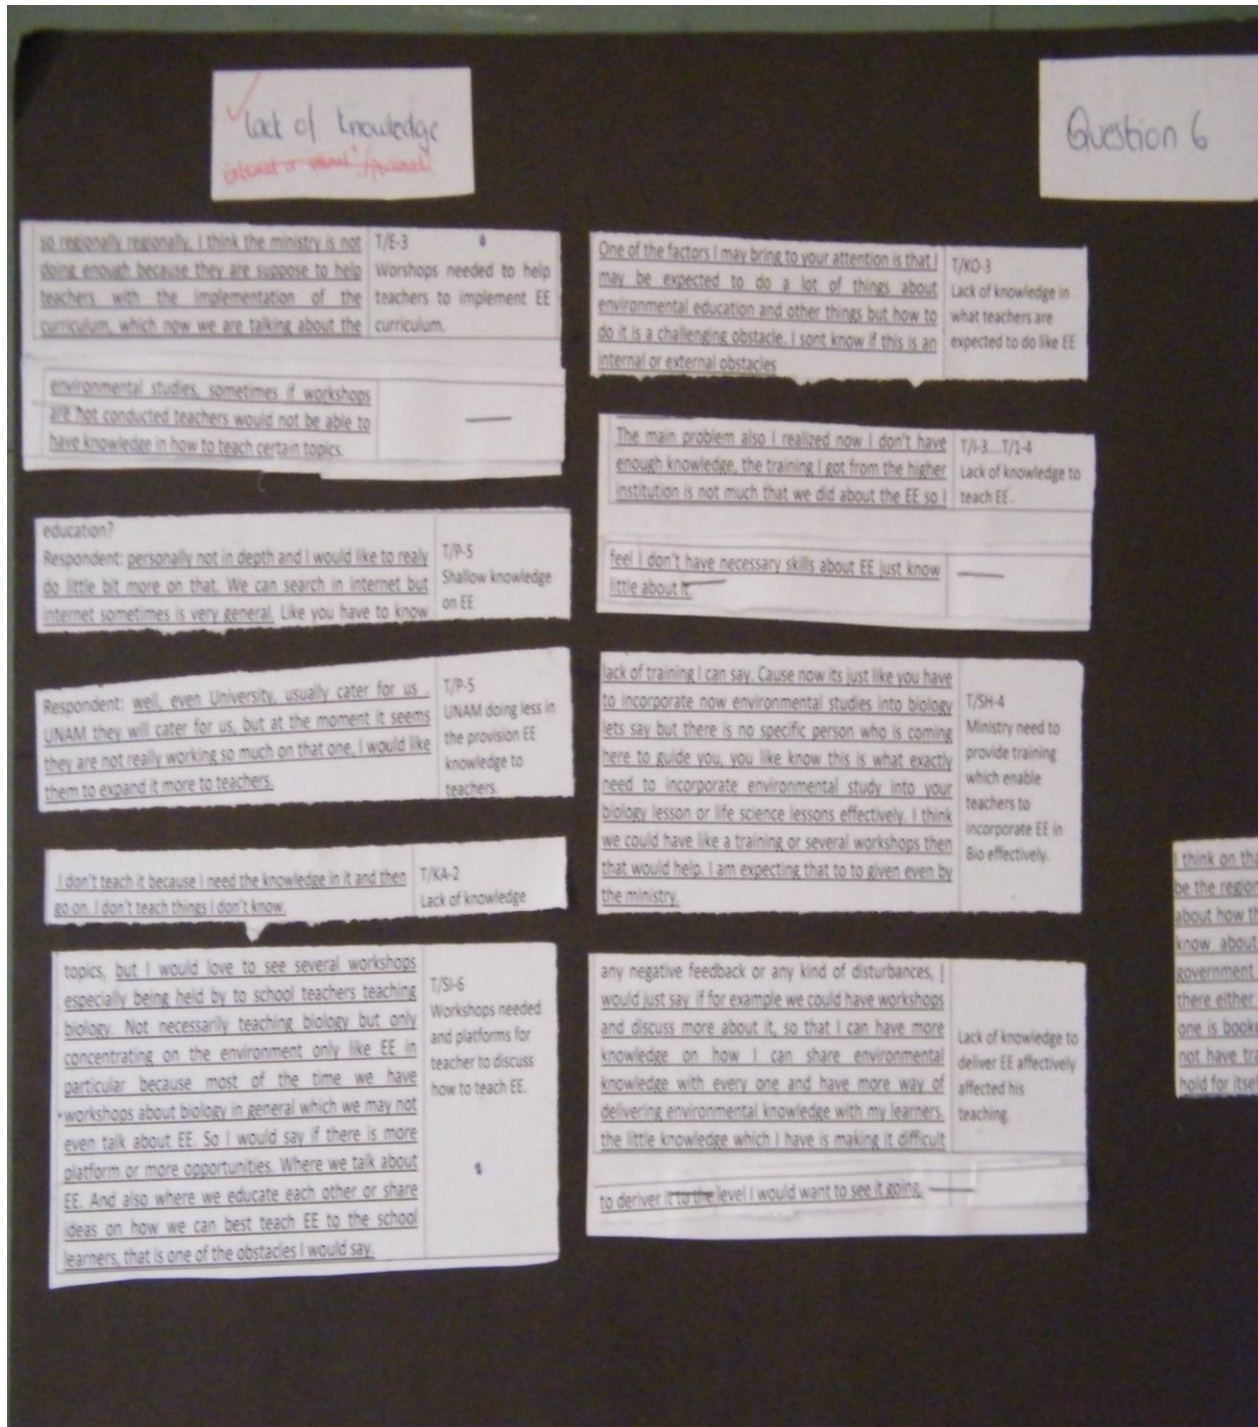 lack of knowledge
Question 6
so regionally regionally. I think the ministry is not
doing enough because they are suppose to help
teachers with the implementation of the
curriculum, which now we are talking about the
T/E-3
Worshops needed to help
teachers to implement EE
curriculum.
environmental studies, sometimes if workshops
are not conducted teachers would not be able to
have knowledge in how to teach certain topics.
education?
Respondent: personally not in depth and I would like to realy
do little bit more on that. We can search in internet but
internet sometimes is very general. Like you have to know
T/P-5
Shallow knowledge
on EE
Respondent: well, even University, usually cater for us .
UNAM they will cater for us, but at the moment it seems
they are not really working so much on that one, I would like
them to expand it more to teachers.
T/P-5
UNAM doing less in
the provision EE
knowledge to
teachers.
I don't teach it because I need the knowledge in it and then
go on. I don't teach things I don't know.
T/KA-2
Lack of knowledge
topics, but I would love to see several workshops
especially being held by to school teachers teaching
biology. Not necessarily teaching biology but only
concentrating on the environment only like EE in
particular because most of the time we have
workshops about biology in general which we may not
even talk about EE. So I would say if there is more
platform or more opportunities. Where we talk about
EE. And also where we educate each other or share
ideas on how we can best teach EE to the school
learners, that is one of the obstacles I would say.
T/SI-6
Workshops needed
and platforms for
teacher to discuss
how to teach EE.
One of the factors I may bring to your attention is that I
may be expected to do a lot of things about
environmental education and other things but how to
do it is a challenging obstacle. I sont know if this is an
internal or external obstacles
T/KO-3
Lack of knowledge in
what teachers are
expected to do like EE
The main problem also I realized now I don't have
enough knowledge, the training I got from the higher
institution is not much that we did about the EE so I
T/I-3....T/1-4
Lack of knowledge to
teach EE.
feel I don't have necessary skills about EE just know
little about it.
lack of training I can say. Cause now its just like you have
to incorporate now environmental studies into biology
lets say but there is no specific person who is coming
here to guide you, you like know this is what exactly
need to incorporate environmental study into your
biology lesson or life science lessons effectively. I think
we could have like a training or several workshops then
that would help. I am expecting that to to given even by
the ministry.
T/SH-4
Ministry need to
provide training
which enable
teachers to
incorporate EE in
Bio effectively.
any negative feedback or any kind of disturbances, I
would just say if for example we could have workshops
and discuss more about it, so that I can have more
knowledge on how I can share environmental
knowledge with every one and have more way of
delivering environmental knowledge with my learners.
the little knowledge which I have is making it difficult
Lack of knowledge to
deliver EE affectively
affected his
teaching.
to deriver it to the level I would want to see it going.
I think on tha
be the region
about how th
know about
government.
there either
one is book
not have tra
hold for itsel